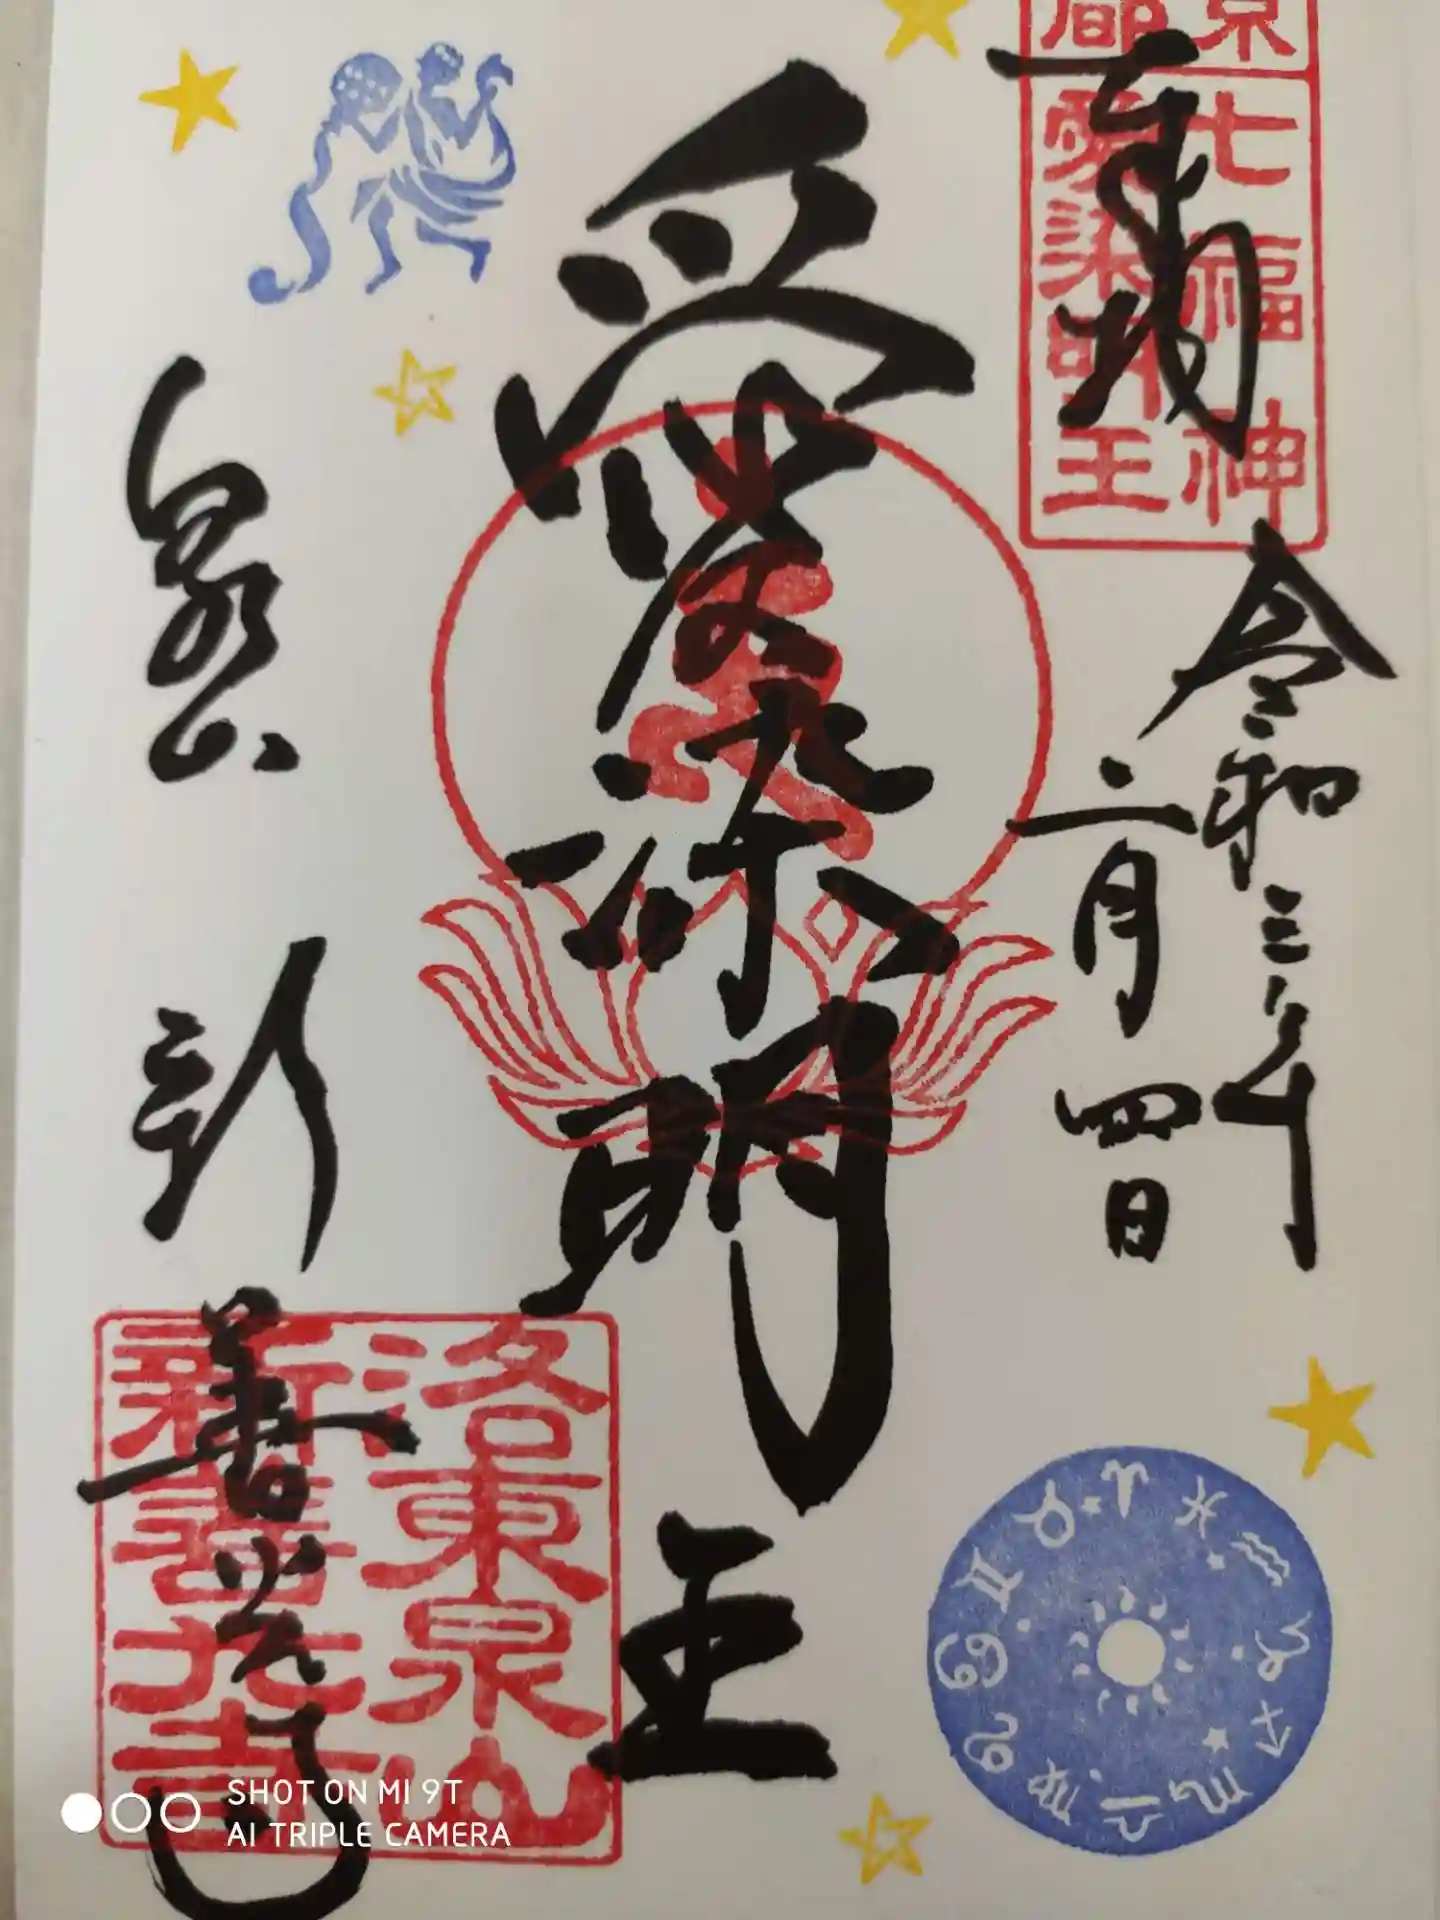 奉拝
京都
七福神
愛染明王
令和三年
二月四日
愛染明王
泉山
新善光寺
洛東泉山
新善光寺
SHOT ON MI 9T
AI TRIPLE CAMERA